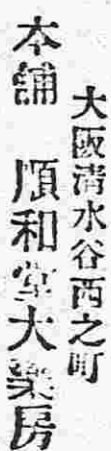 大阪清水谷西之町
本舗 順和堂大薬房